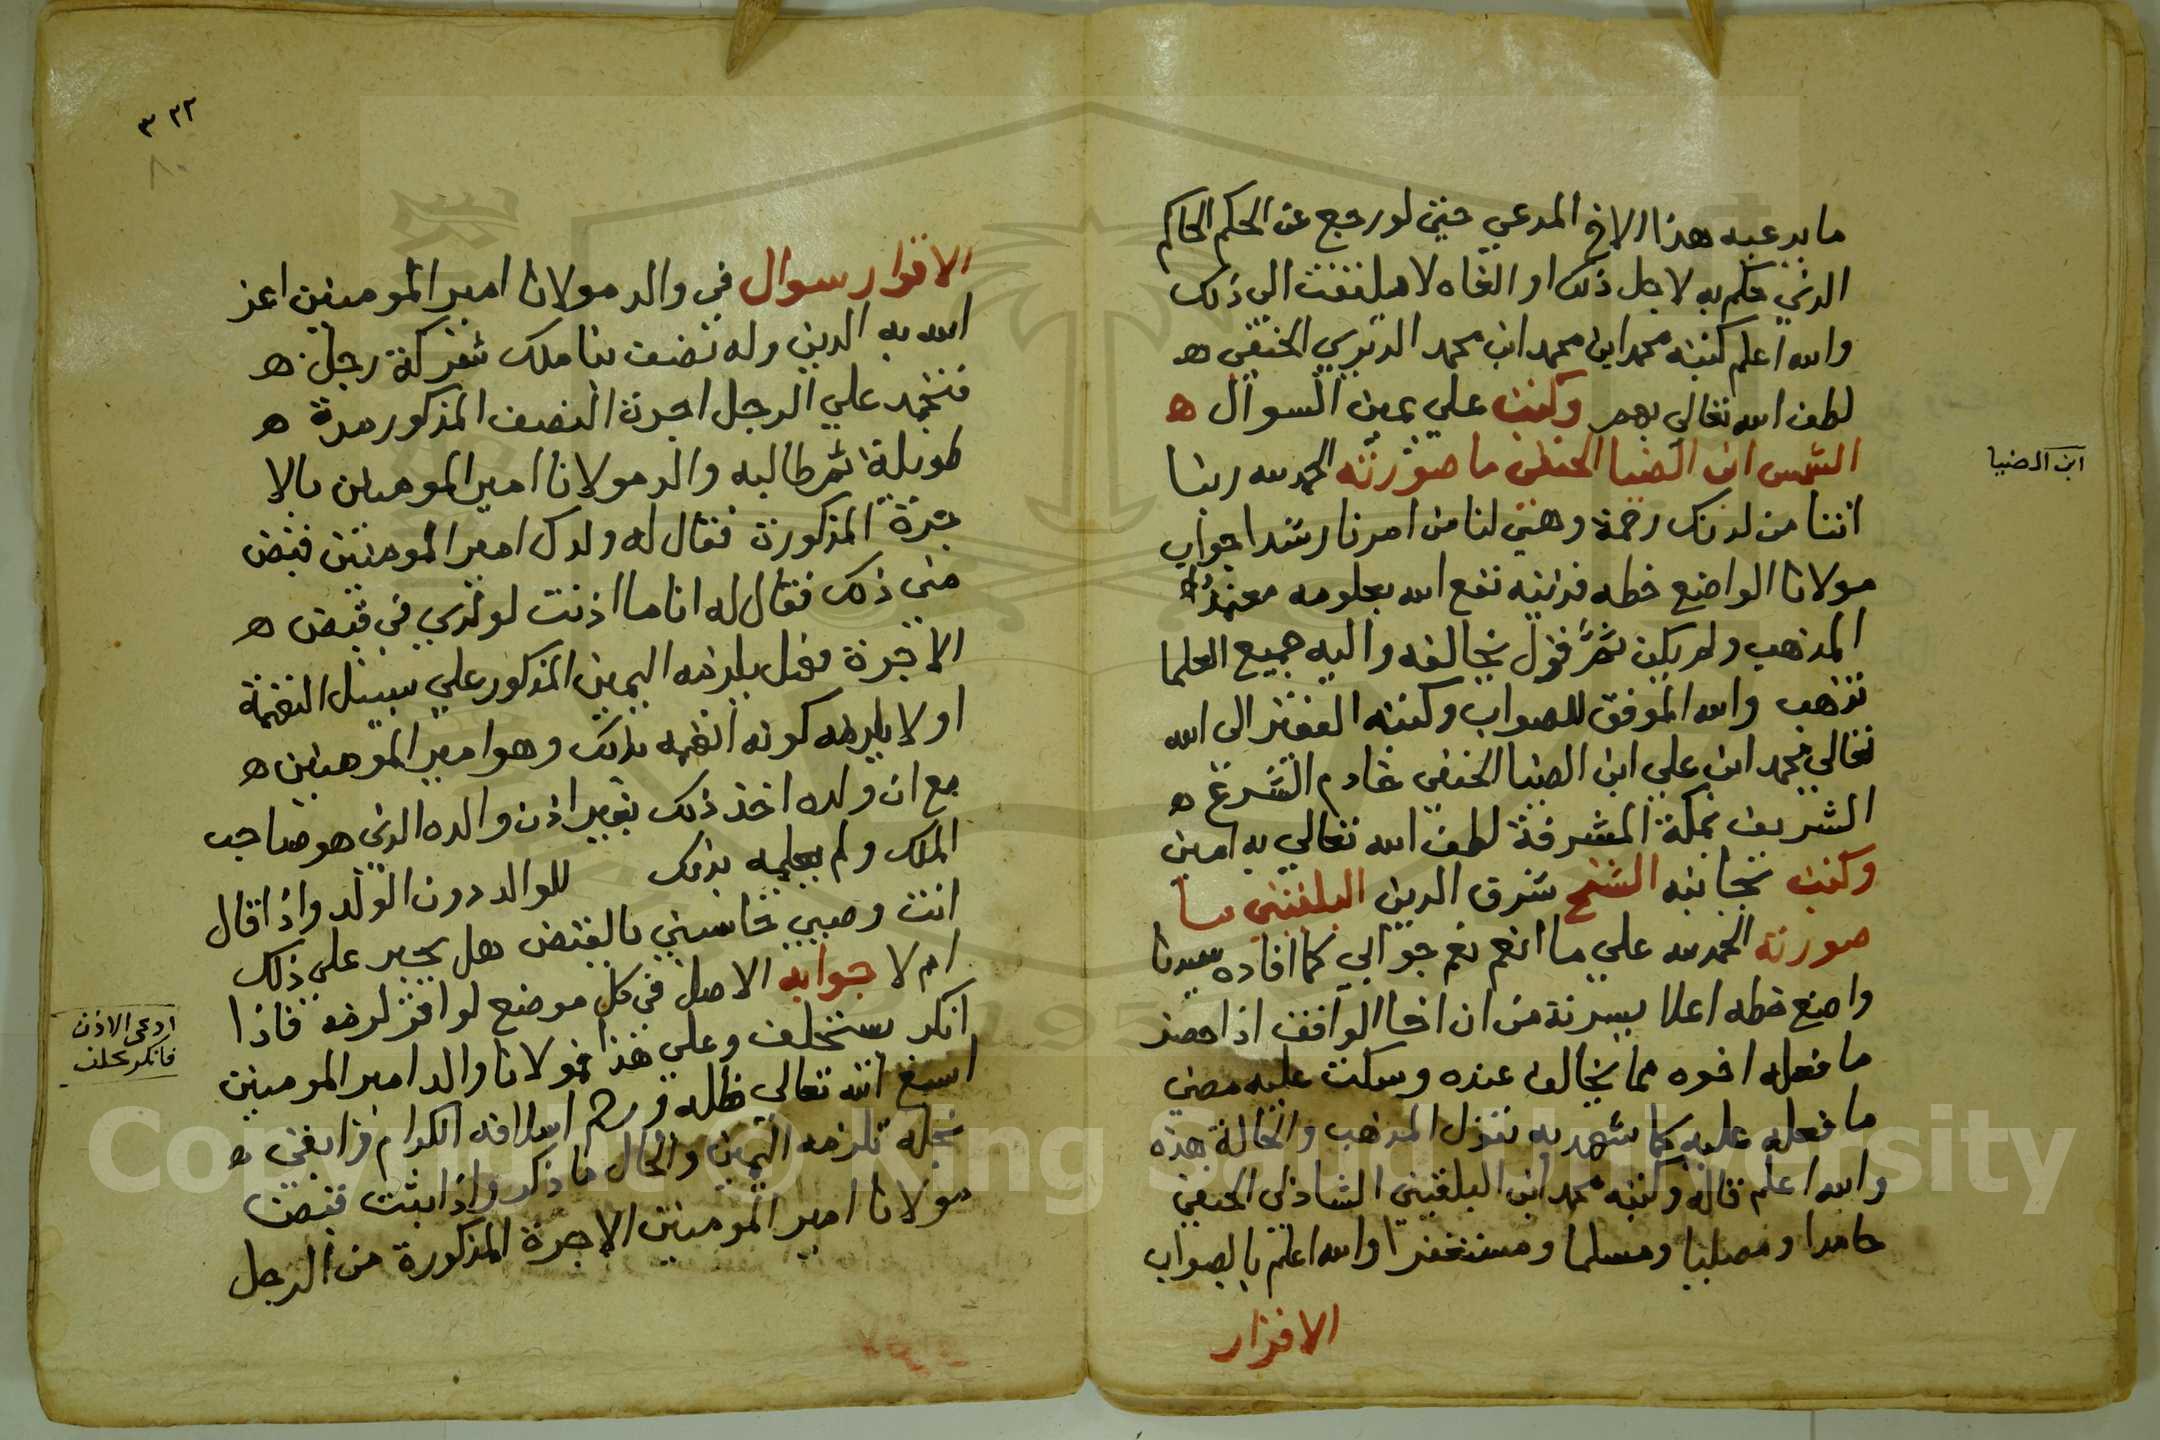 ما يدعيه هذا الاخ المدعي حتى لو رجع عن الحكم الحاكم
الذي حكم به لاجل ذلك او الغاه لا يلتفت الى ذلك
والله اعلم كتبه محمد ابن محمد ابن محمد الديري الحنفي ه
لطف الله تعالي بهم وكتب علي يمين السوال ه
الشمس ابن الضيا الحنفي ما صورته الحمد لله ربنا
اتنا من لدنك رحمة وهيئ لنا من امرنا رشدا جواب
مولانا الواضع خطه قرينه نفع الله بعلومه معتمد
المذهب ولم يكن ثم قول يخالفه واليه جميع العلما
تذهب والله الموفق للصواب وكتبه الفقير الى الله
تعالي محمد ابن علي ابن الضيا الحنفي خادم الشرع ه
الشريف بمكة المشرفة لطف الله تعالي به امين
وكتب بجانبه الشيخ شرف الدين البلقيني ما
صورته الحمد لله علي ما انعم نعم جوابي كما افاده سيدنا
واضع خطه اعلا يسرته من ان اخا الواقف اذا حضر
ما فعله اخوه مما يخالف عنده وسكت عليه مضي
ما فعله عليه كما شهد به نقول المذهب والحالة هذه
والله اعلم قاله وكتبه محمد ابن البلقيني الشاذلى الحنفي
حامدا ومصليا ومسلما ومستغفرا والله اعلم بالصواب
الاقرار
ابن الضيا
٣٢٢
٨٠
الاقرار سوال في والد مولانا امير المومنين اعز
الله به الدين وله نصف بنا ملك شركة رجل ه
فتجمد علي الرجل اجرة النصف المذكور مدة ه
طويلة ثم طالبه والد مولانا امير المومنين بالا
جرة المذكورة فقال له ولدك امير المومنين قبض
مني ذلك فقال له انا ما اذنت لولدي في قبض ه
الاجرة فهل يلزمه اليمين المذكور علي سبيل التهمة
او لا يلزمه كونه اتهمه بذلك وهو امير المومنين ه
مع ان ولده اخذ ذلك بغير اذن والده الذي هو صاحب
الملك ولم يعلمه بذلك للوالد دون الولد واذا قال
انت وصيي حاسبني بالقبض هل يجبر علي ذلك
ام لا جوابه الاصل في كل موضع لو اقر لزمه فاذا
انكر يستحلف وعلي هذا فمولانا والد امير المومنين
اسبغ الله تعالى ظله ورحم اسلافه الكرام
نجله تلزمه اليمين والحال ما ذكر واذا ثبت قبض
مولانا امير المومنين الاجرة المذكورة من الرجل
ادعى الاذن
فانكر يحلف
Copyright © King Saud University